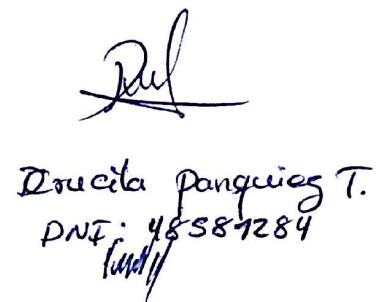 Drucila Panquiag T.
DNI: 48581284